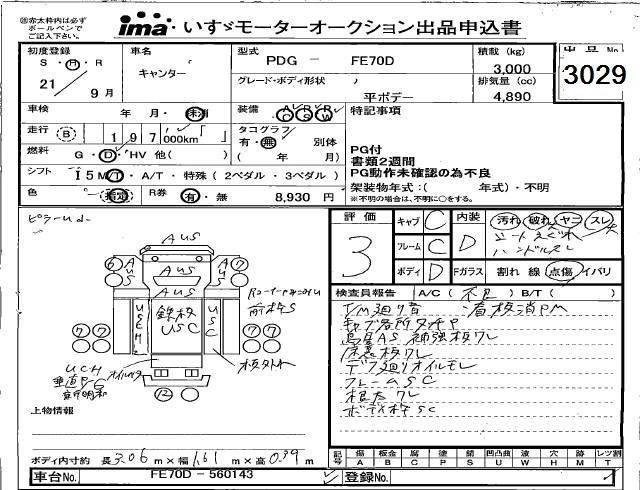 ㊟赤太枠内は必ず
ボールペンで
ご記入下さい。
ima いすゞモーターオークション出品申込書
初度登録
S・H・R
21
9月
車名
キャンター
型式
PDG － FE70D
グレード・ボディ形状
平ボデー
積載 (kg)
3,000
排気量 (cc)
4,890
出品No
3029
車検
年 月・未消
装備 A/C P/S P/W
特記事項
走行 B 197,000km「 」
タコグラフ
有・無 別体
( 年 月)
燃料
G・D・HV 他( )
シフト I5 M/T・A/T・特殊 (2ペダル・3ペダル)
色 指定
R券 有・無 8,930 円
PG付
書類2週間
PG動作未確認の為不良
架装物年式:( 年式)・不明
※不明の場合は、不明に○をする。
評価
3
キャブ C
フレーム C
ボディ D
内装 D
汚れ 破れ ヤニ スレ
ハンドルスレ
Fガラス 割れ 線 点傷 イバリ
検査員報告 A/C (不良) B/T ( )
T/M廻り音
看板消PM
キャブ各所タッチP
鳥居AS 補強板ワレ
床裏板ワレ
デフ廻りオイルモレ
フレームSC
根太ワレ
ボディ枠SC
AUS
AUS
AUS
AUS
AUS
6
7
7
7
7
7
12
UCH
鉄板
USC
USC
UCH
板ワレ
上物情報
ボディ内寸約 長 3.06 m×幅 1.61 m×高 0.39 m
記号 傷 A 板金 B 腐 C 塗 P 錆 S 凹凸曲 U 波 W 穴 H 跡 M レツ割 T
車台No. FE70D－560143
登録No.